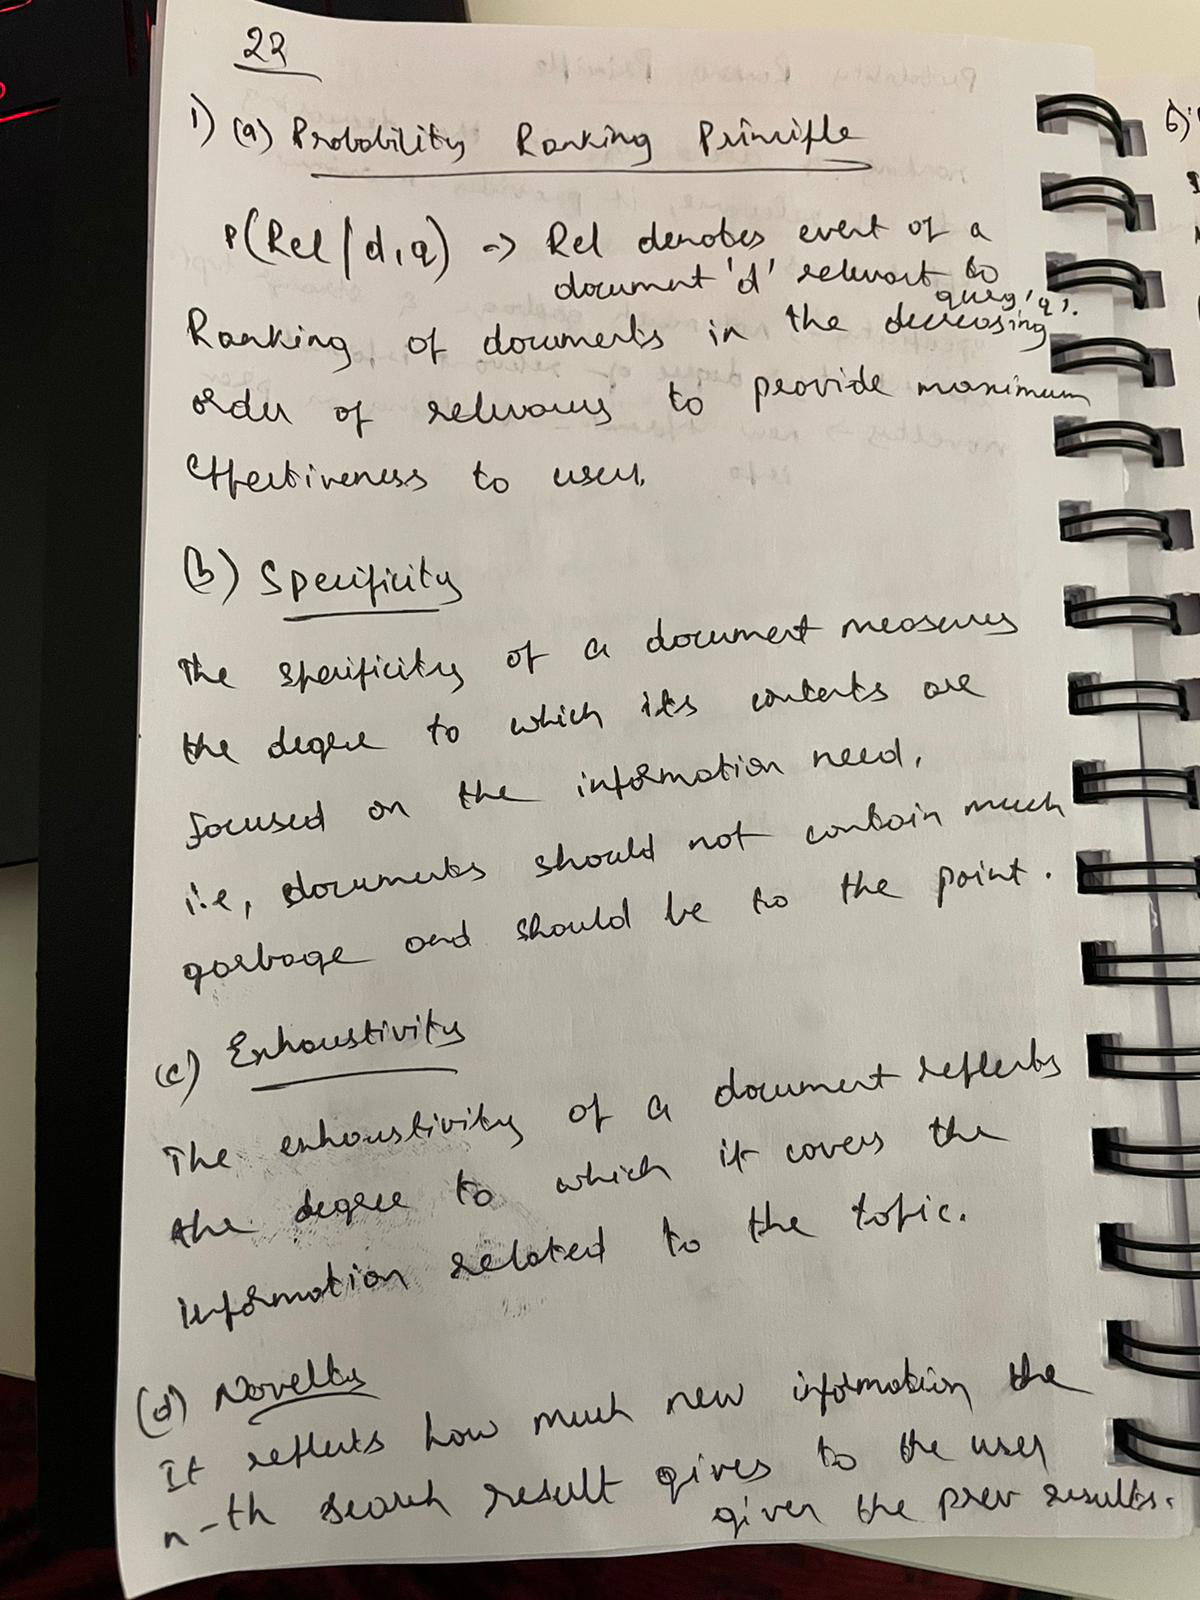 22
1) (a) Probability Ranking Principle
P(Rel/d,q) -> Rel denotes event of a
document 'd' relevant to
query 'q'.
Ranking of documents in the decreasing
order of relevance to provide maximum
effectiveness to user.
(b) Specificity
The specificity of a document measures
the degree to which its contents are
focused on the information need.
i.e, documents should not contain much
garbage and should be to the point.
(c) Exhaustivity
The exhaustivity of a document reflects
the degree to which it covers the
information related to the topic.
(d) Novelty
It reflects how much new information the
n-th search result gives to the user
given the prev results.
6)